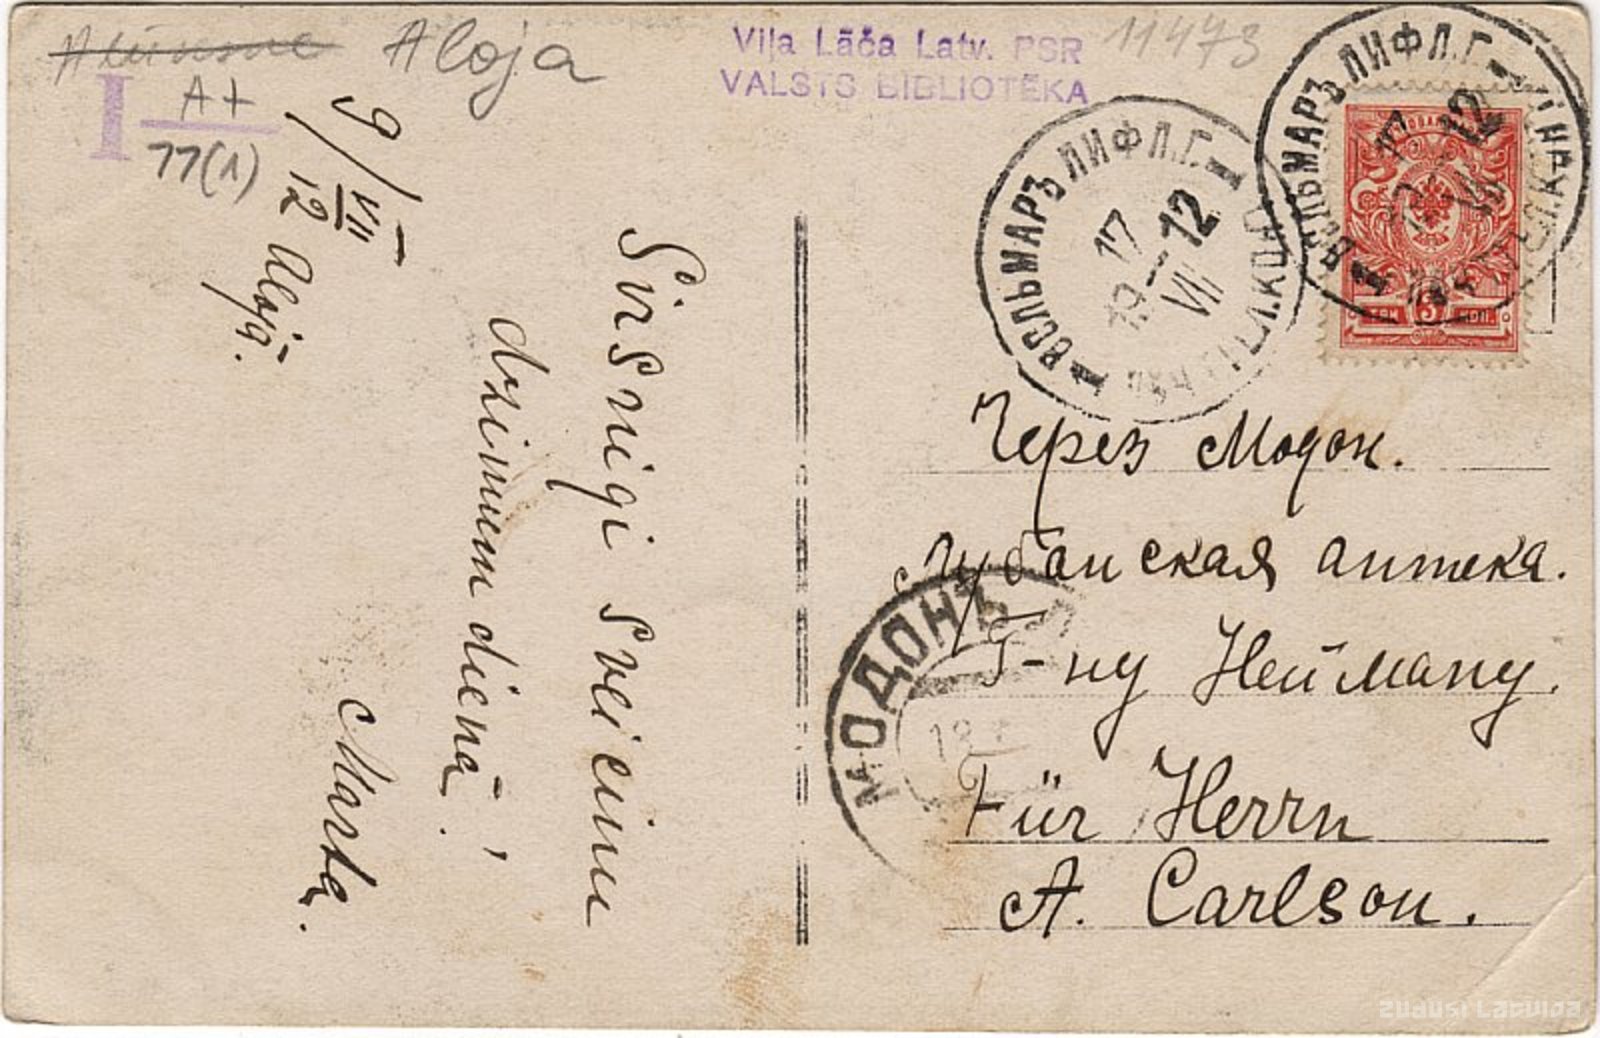 Alūksne Aloja
I A+
77(1)
Viļa Lāča Latv. PSR
VALSTS BIBLIOTĒKA
11473
9/VII 12 Alojā.
Sirsnigi sveicinu
dzimum dienā!
Marta.
ВОЛЬМАРЪ ЛИФЛ.Г.
17 VII 12
ВОЛЬМАРЪ ЛИФЛ.Г.
17 VII 12
3 КОП.
Через Модон.
Лубанская аптека.
Г-ну Нейману.
Für Herrn
A. Carlson.
МОДОНЪ
zudusi Latvija